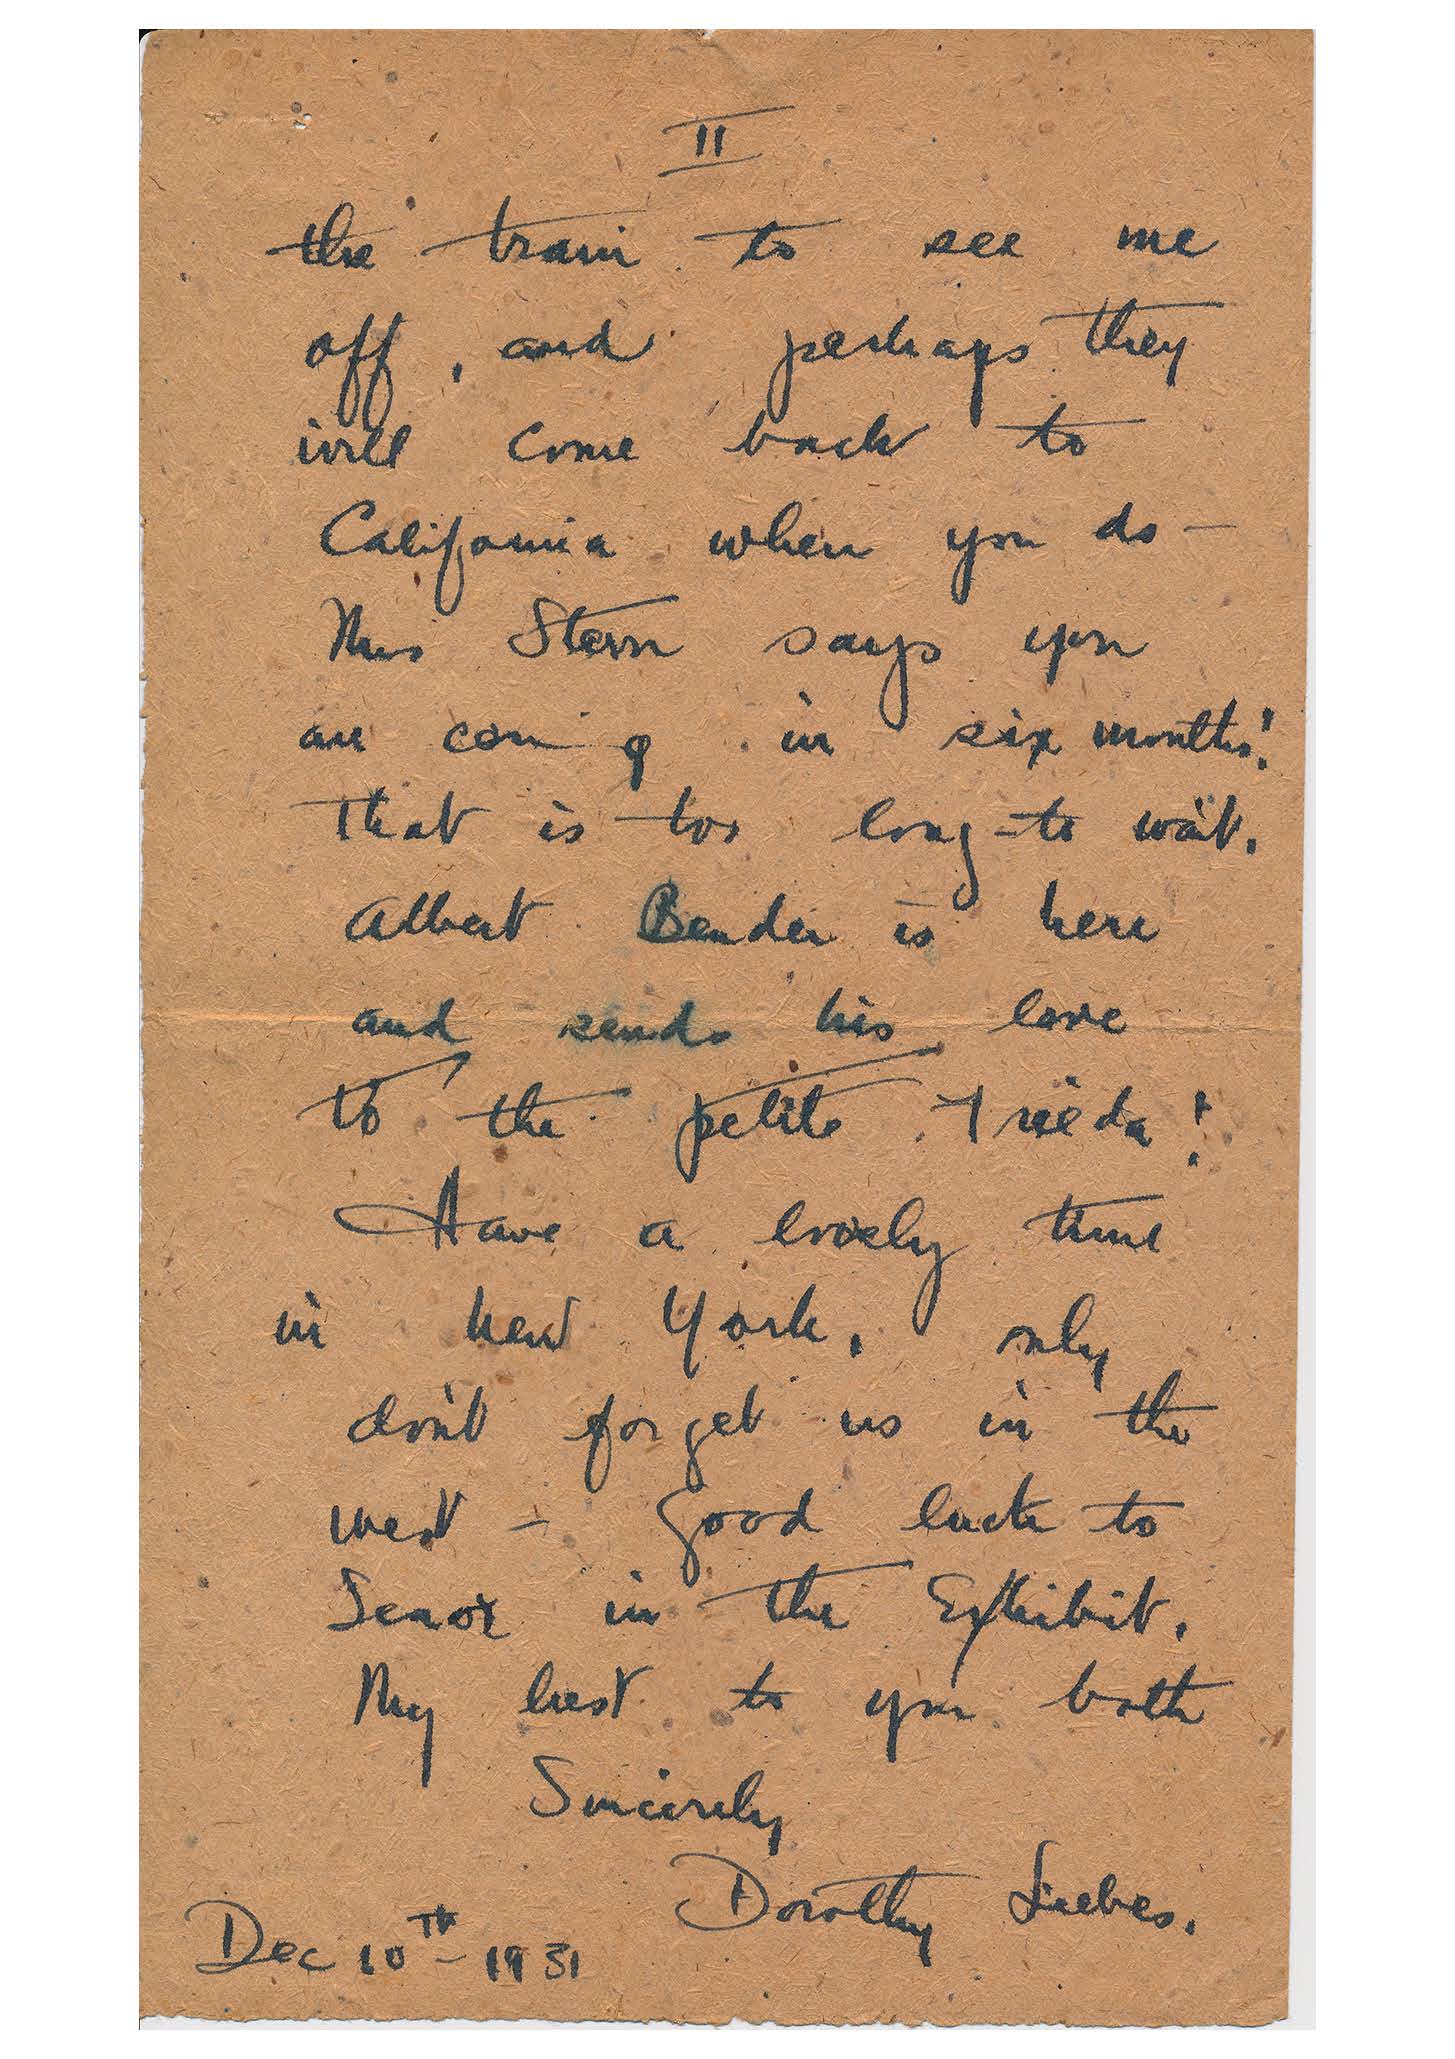 II
the train to see me
off, and perhaps they
will come back to
California when you do –
Mrs Stern says you
are coming in six months!
That is too long to wait.
Albert Bender is here
and sends his love
to the petite Frieda!
Have a lovely time
in New York, only
don't forget us in the
west – Good luck to
Senor in the Exhibit.
My best to you both
Sincerely
Dorothy Liebes.
Dec 10th – 1931